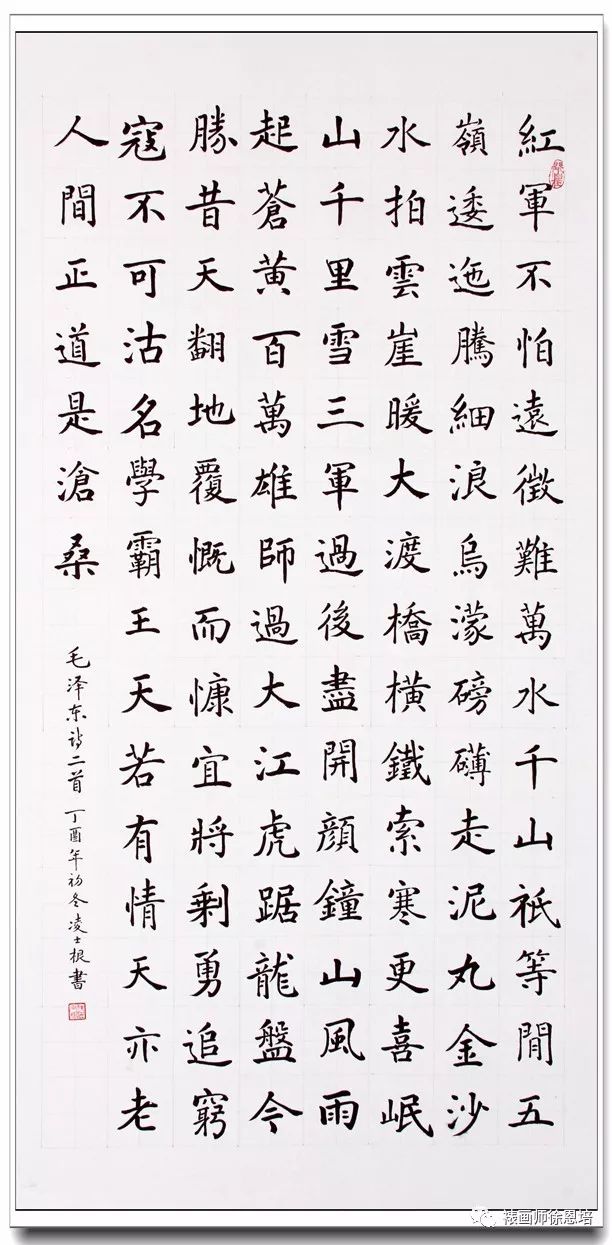 紅軍不怕遠徵難萬水千山祇等閒五
嶺逶迤騰細浪烏濛磅礴走泥丸金沙
水拍雲崖暖大渡橋橫鐵索寒更喜岷
山千里雪三軍過後盡開顏鐘山風雨
起蒼黃百萬雄師過大江虎踞龍盤今
勝昔天翻地覆慨而慷宜將剩勇追窮
寇不可沽名學霸王天若有情天亦老
人間正道是滄桑
毛泽东诗二首丁酉年初冬凌士根書
裱画师徐恩培